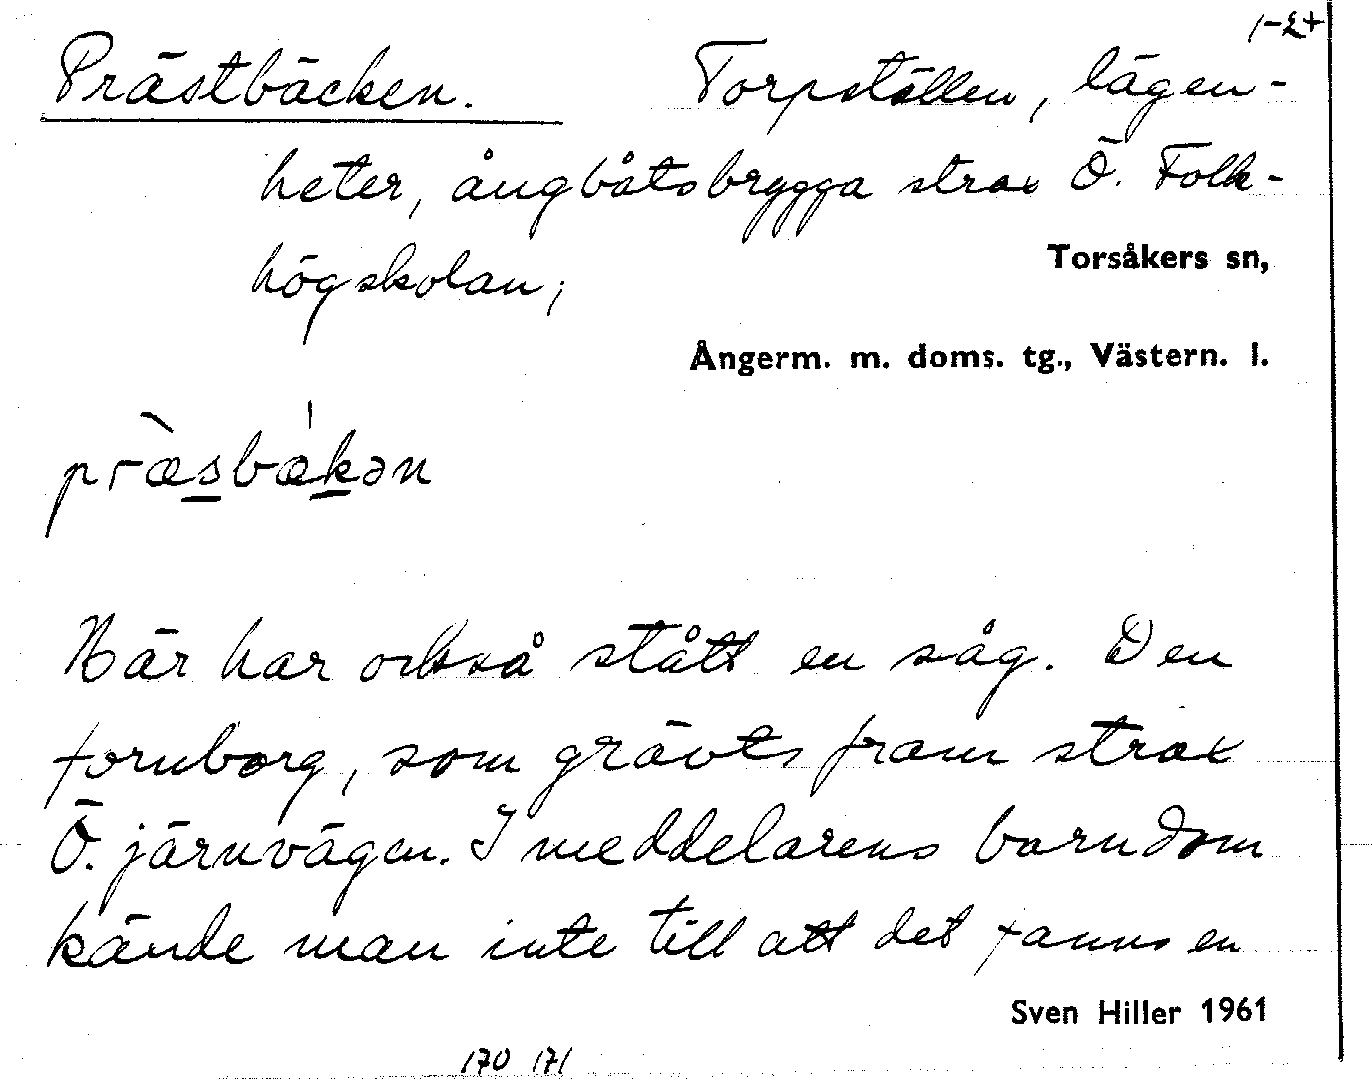 1-2+
Prästbäcken. Torpställen, lägen-
heter, ångbåtsbrygga strax Ö. Folk-
högskolan;
Torsåkers sn,
Ångerm. m. doms. tg., Västern. l.
præ̀sbæ̀kən
Här har också stått en såg. Den
fornborg, som grävts fram strax
Ö. järnvägen. I meddelarens barndom
kände man inte till att det fanns en
Sven Hiller 1961
170 171